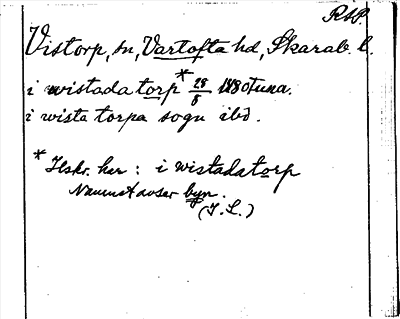 RAP.
Vistorp, sn, Vartofta hd, Skarab. l.
i wistada torp* 28/8 1480 Tuna.
i wista torpa sogn ibd.
* Hskr. har : i wistadatorp
Namnet avser byn.
(I. L.)